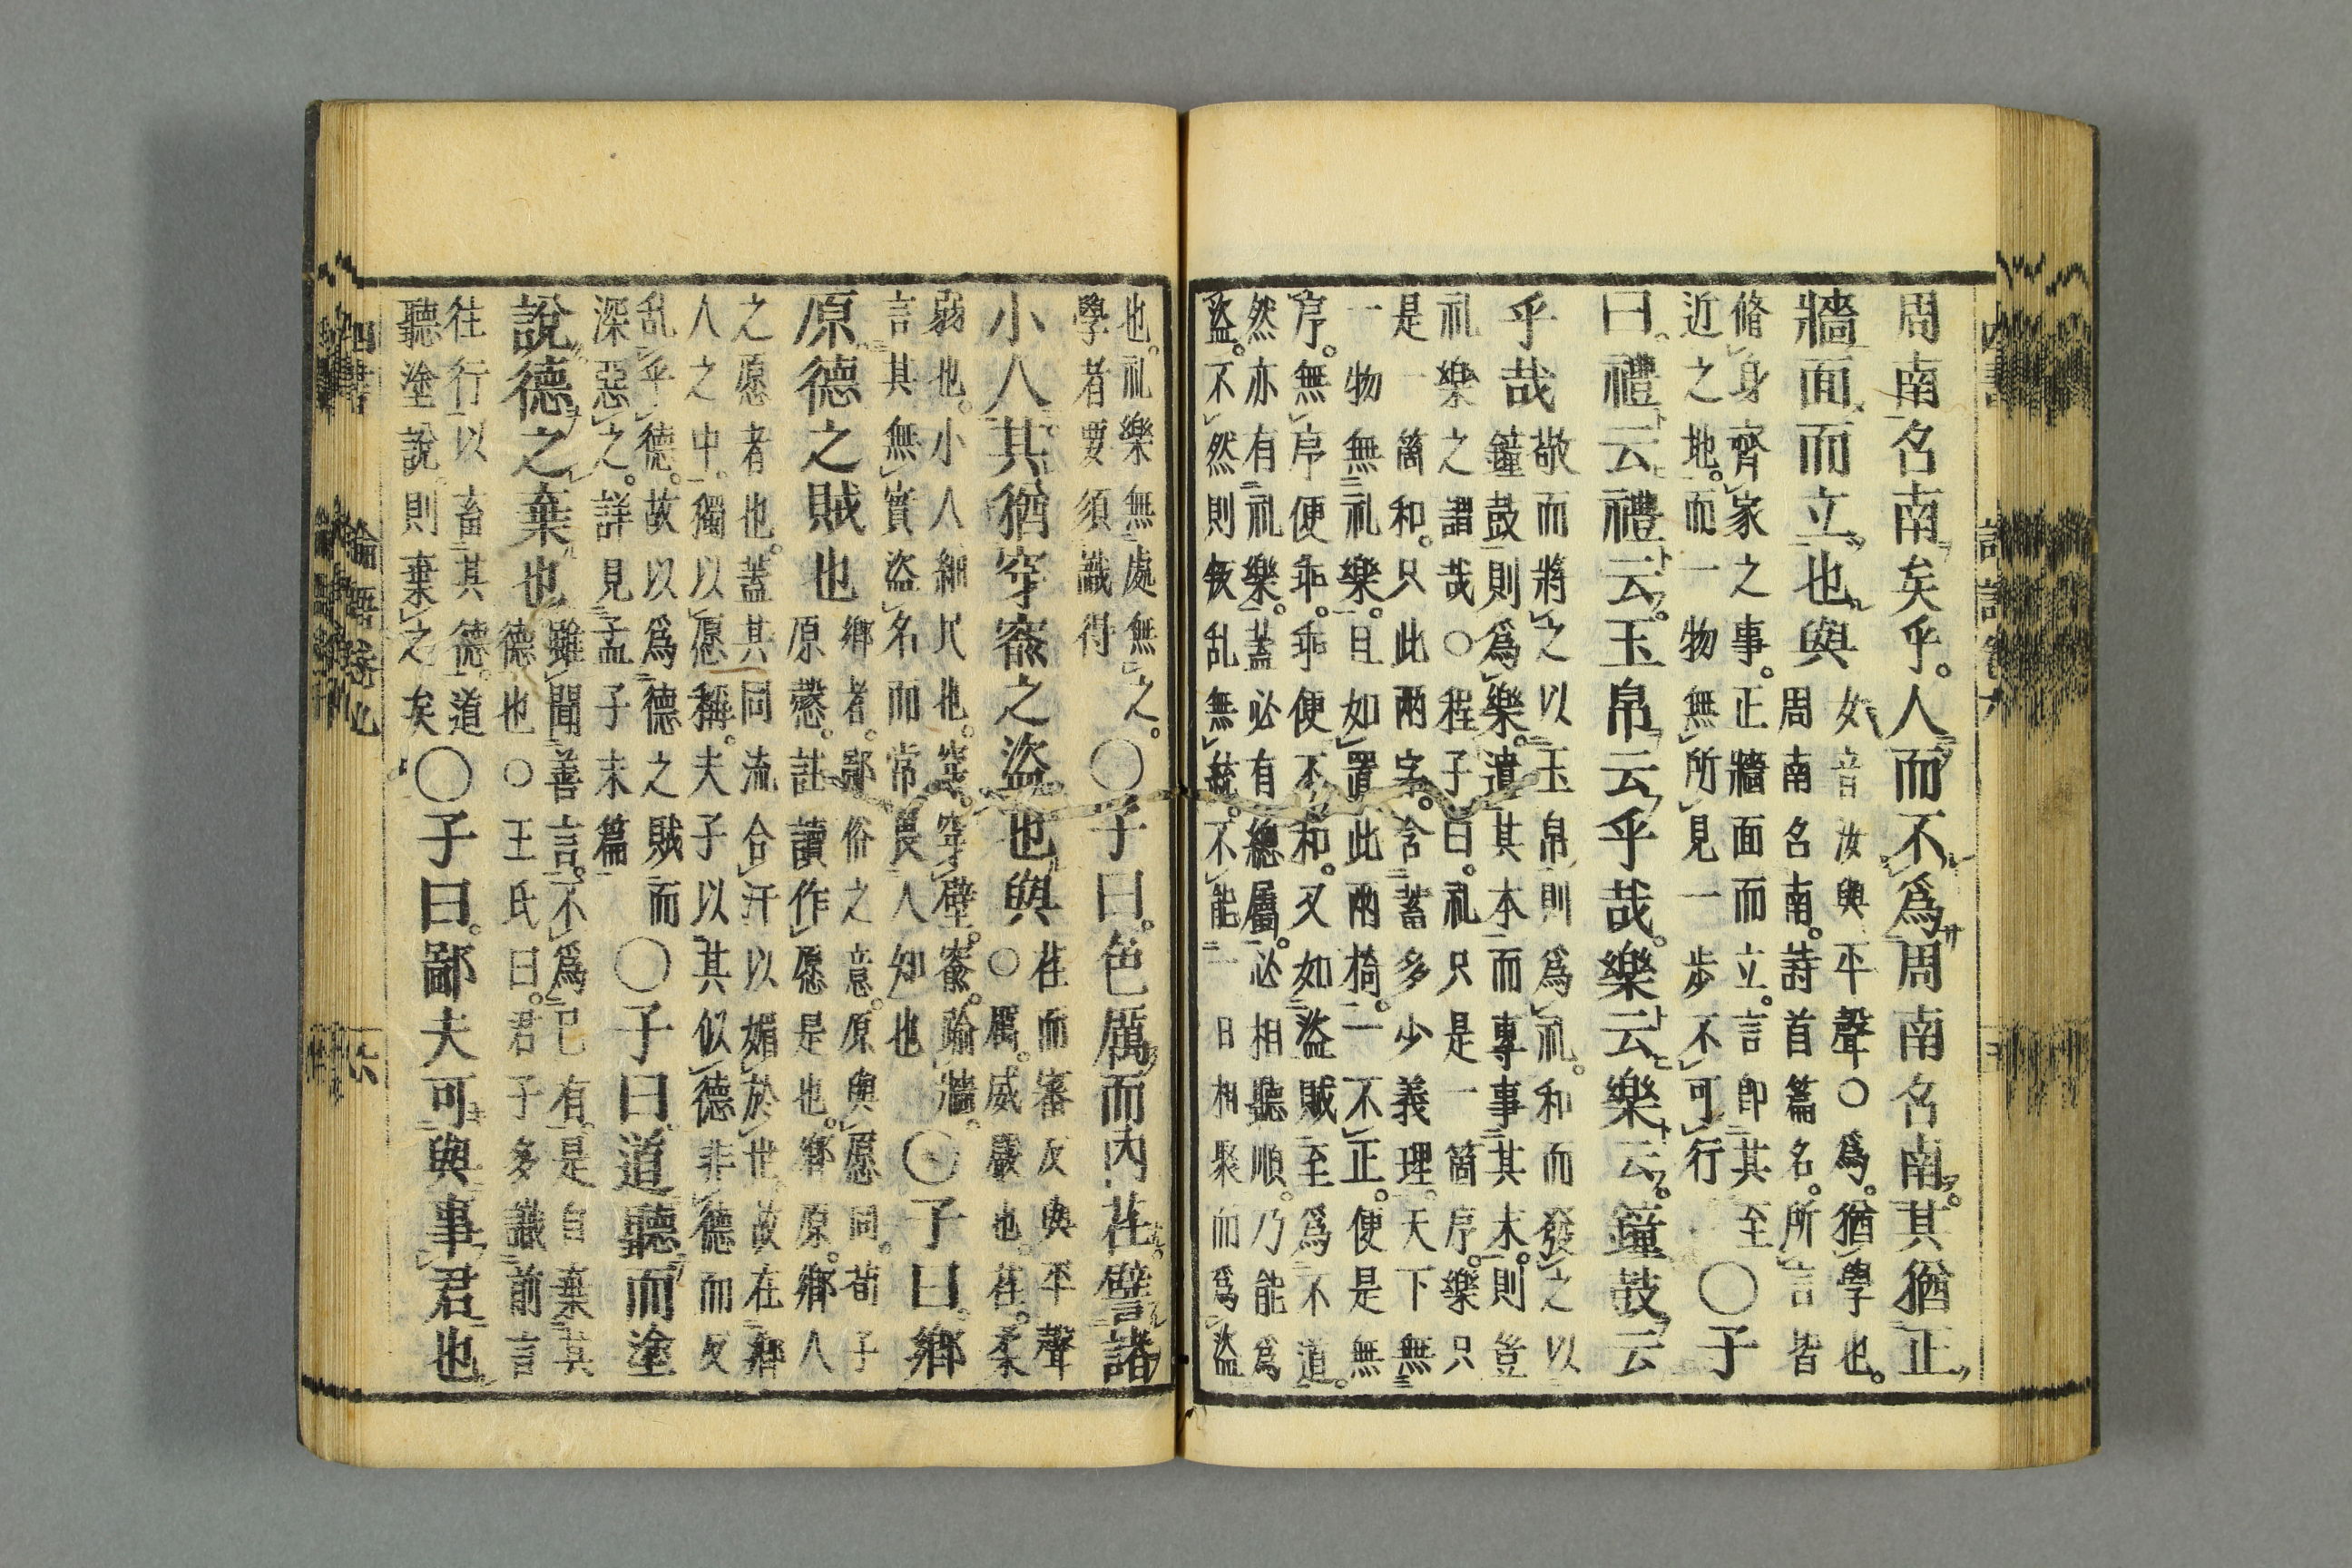 周南名南矣乎。人而不爲周南名南。其猶正
牆面而立也與
女音汝與平聲○爲。猶學也。
周南名南。詩首篇名。所言皆
脩身齊家之事。正牆面而立。言即其至
近之地。而一物無所見一歩不可行
○子
曰。禮云禮云。玉帛云乎哉。樂云樂云。鐘鼓云
乎哉
敬而將之以玉帛則爲礼。和而發之以
鐘鼓則爲樂。遺其本而專事其末。則豈
礼樂之謂哉○程子曰。礼只是一箇序。樂只
是一箇和。只此兩字。含蓄多少義理。天下無
一物無礼樂。且如置此兩椅。一不正。便是無
序。無序便乖。乖便不和。又如盜賊至爲不道。
然亦有礼樂。蓋必有總屬。必相聽順。乃能爲
盜。不然則叛乱無統。不能一日相聚而爲盜
也。礼樂無處無之。
學者要須識得
○子曰。色厲而内荏。譬諸
小人其猶穿窬之盜也與
荏而審反與平聲
○厲。威嚴也。荏。柔
弱也。小人細民也。穿。穿壁。窬。踰牆。
言其無實盜名而常畏人知也
○子曰。鄉
原德之賊也
鄉者。鄙俗之意。原與愿同。荀子
原愨。註讀作愿是也。鄉原。鄉人
之愿者也。蓋其同流合汙以媚於世。故在鄉
人之中。獨以愿稱。夫子以其似德非德而反
乱乎德。故以爲德之賊而
深惡之。詳見孟子末篇
○子曰。道聽而塗
說德之棄也
雖聞善言。不爲己有。是自棄其
德也○王氏曰。君子多識前言
往行以畜其德。道
聽塗說。則棄之矣
○子曰。鄙夫可與事君也
四書 論語卷九 六